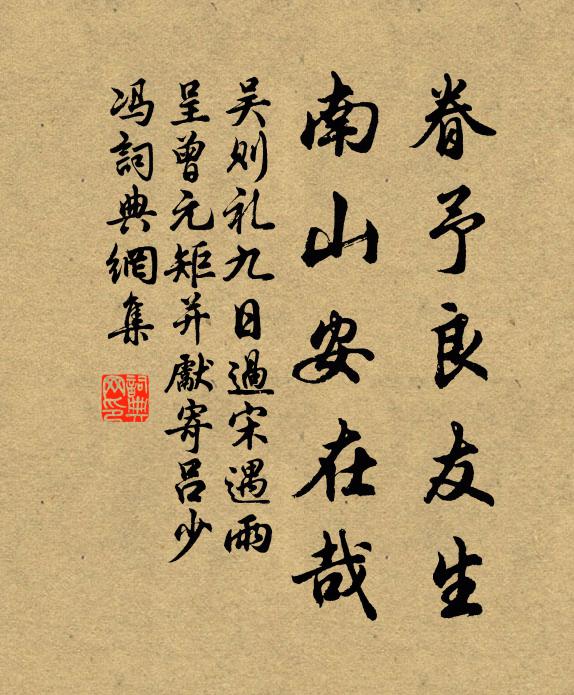 眷予良友生
南山安在哉
吴则礼九日過宋遇雨
呈曾元矩并獻寄吕少
冯詞典網集
詞典网印